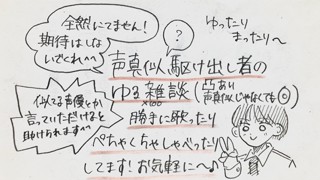 全然にてません!
期待はしな
いでくれ^^
?
ゆったり
まったり〜
声真似駆け出し者の
ゆる雑談(凸あり
声真似じゃなくても◎)
×100
勝手に歌ったり
ぺちゃくちゃしゃべったり
してます!お気軽に〜♪
似てる声優とか
言っていただけると
助けられます^^